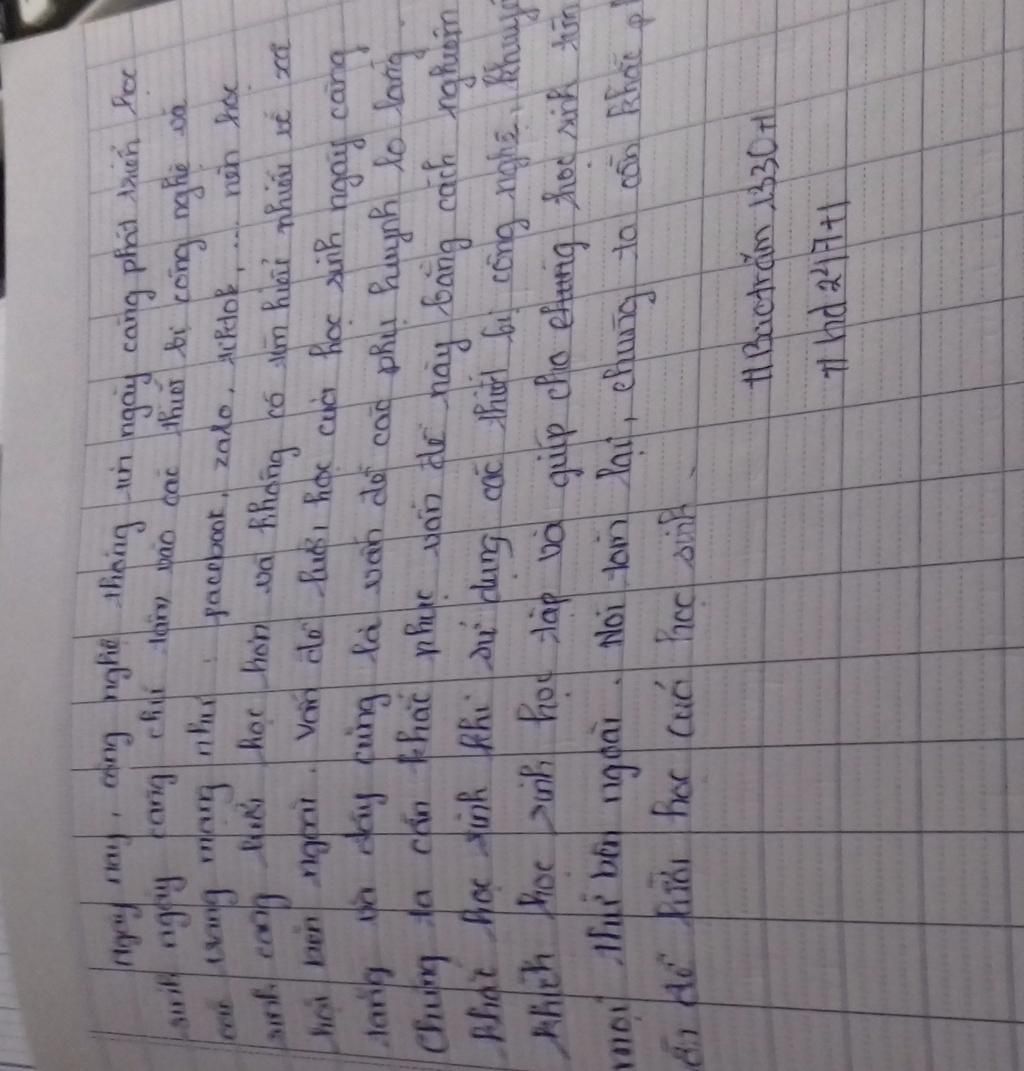 Ngày nay, công nghệ thông tin ngày càng phát triển học
sinh ngày càng chú tâm vào các thiết bị công nghệ và
các trang mạng như : facebook, zalo, tiktok,... nên học
sinh càng lười học hơn và không có tìm hiểu nhiều về xã
hội bên ngoài. Vấn đề lười học của học sinh ngày càng
tăng và đây cũng là vấn đề các phụ huynh lo lắng.
Chúng ta cần khắc phục vấn đề này bằng cách nghiêm
khắc học sinh khi sử dụng các thiết bị công nghệ, khuyến
khích học sinh học tập và giúp cho chúng học sinh tìm
mọi thứ bên ngoài. Nói tóm lại, chúng ta cần khắc
vấn đề lười học của học sinh.
#Baotrâm1330H
#hd247+1